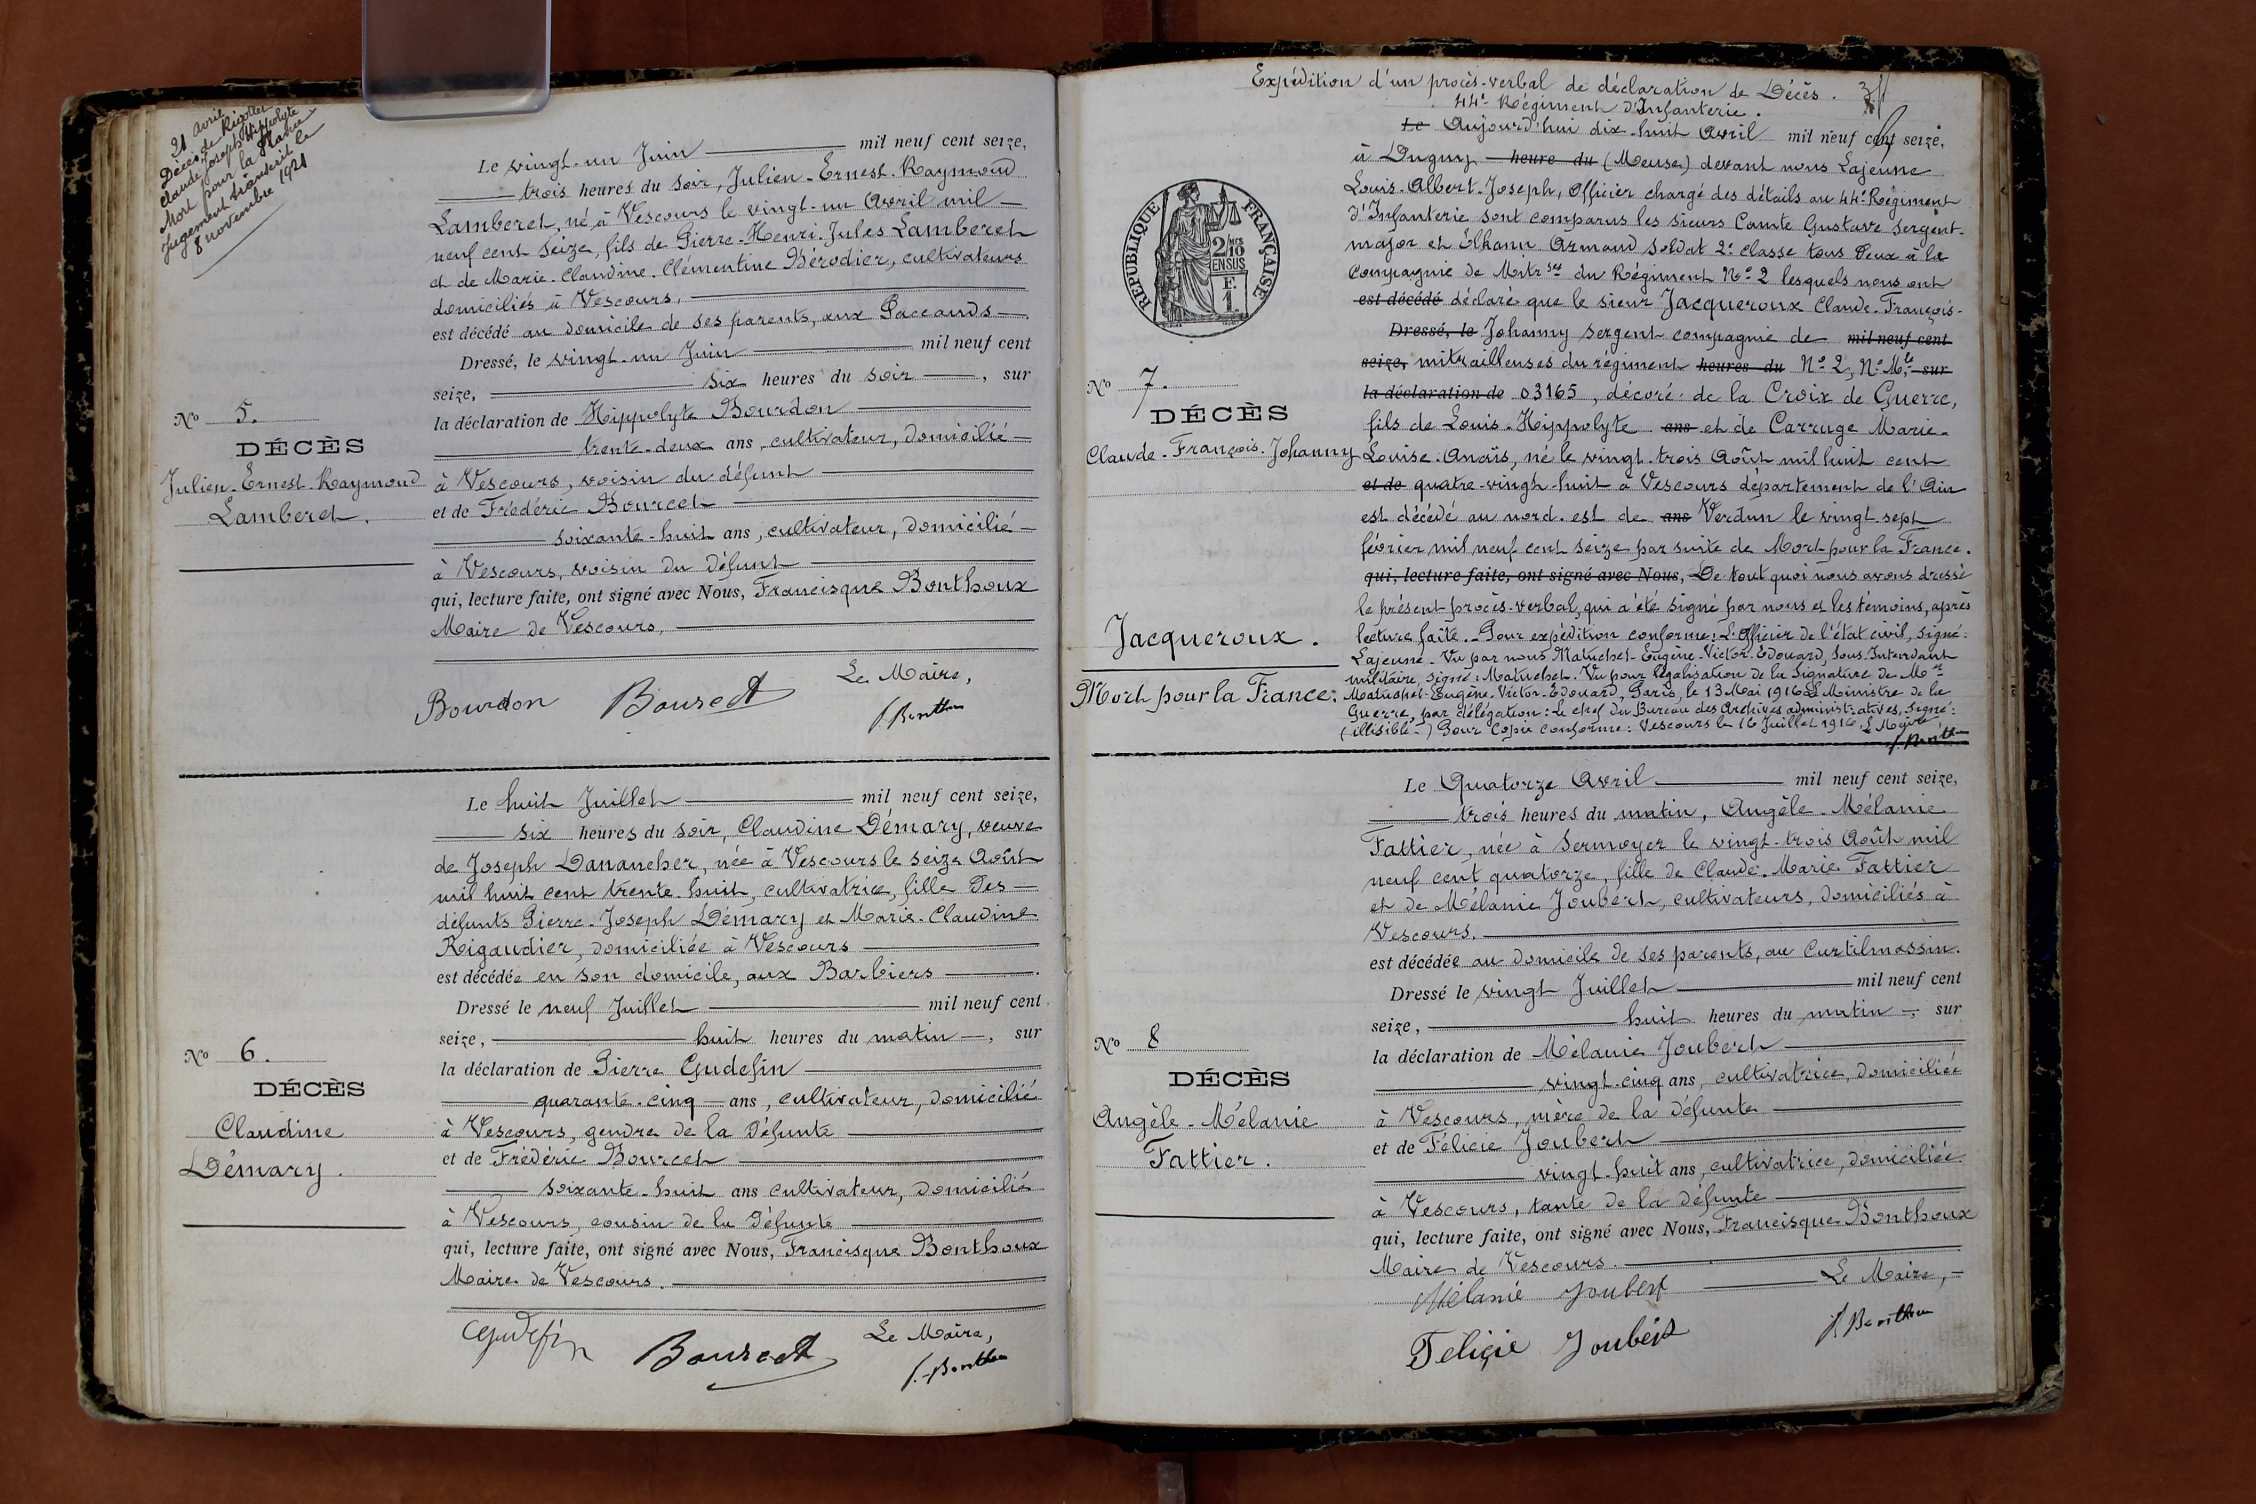 21 avril
Décès de Rigollet
Claude Joseph Hippolyte
Mort pour la France
Jugement transcrit le
8 novembre 1921
Le vingt-un Juin mil neuf cent seize,
trois heures du soir, Julien-Ernest-Raymond
Lamberet, né à Vescours le vingt-un Avril mil
neuf cent seize, fils de Pierre-Henri-Jules Lamberet
et de Marie-Claudine-Clémentine Bérodier, cultivateurs
domiciliés à Vescours,
est décédé au domicile de ses parents, aux Paccauds
Dressé, le vingt-un Juin mil neuf cent
seize, six heures du soir, sur
la déclaration de Hippolyte Bourdon
trente-deux ans, cultivateur, domicilié
à Vescours, voisin du défunt
et de Frédéric Bourcet
soixante-huit ans, cultivateur, domicilié
à Vescours, voisin du défunt
qui, lecture faite, ont signé avec Nous, Francisque Bonthoux
Maire de Vescours.
No 5.
DÉCÈS
Julien-Ernest-Raymond
Lamberet.
Le Maire,
Bourdon Bourcet F. Bonthoux
Le huit Juillet mil neuf cent seize,
six heures du soir, Claudine Démary, veuve
de Joseph Danancher, née à Vescours le seize Août
mil huit cent trente-huit, cultivatrice, fille des
défunts Pierre-Joseph Démary et Marie-Claudine
Rigaudier, domiciliée à Vescours
est décédée en son domicile, aux Barbiers
Dressé le neuf Juillet mil neuf cent
seize, huit heures du matin, sur
la déclaration de Pierre Gudefin
quarante-cinq ans, cultivateur, domicilié
à Vescours, gendre de la défunte
et de Frédéric Bourcet
soixante-huit ans cultivateur, domicilié
à Vescours, cousin de la défunte
qui, lecture faite, ont signé avec Nous, Francisque Bonthoux
Maire de Vescours.
No 6.
DÉCÈS
Claudine
Démary.
Le Maire,
Gudefin Bourcet F. Bonthoux
Expédition d'un procès-verbal de déclaration de Décès.
44e Régiment d'Infanterie.
Le Aujourd'hui dix-huit Avril mil neuf cent seize,
à Dugny heure du (Meuse) devant nous Lajeune
Louis-Albert-Joseph, Officier chargé des détails au 44e Régiment
d'Infanterie sont comparus les sieurs Comte Gustave Sergent-
major et Elkann Armand soldat 2e classe tous deux à la
Compagnie de Mitrses du Régiment No 2 lesquels nous ont
est décédé déclaré que le sieur Jacqueroux Claude-François-
Dressé, le Johanny sergent compagnie de mil neuf cent
seize, mitrailleuses du régiment heures du No 2, No Mle sur
la déclaration de 03165, décoré de la Croix de Guerre,
fils de Louis-Hippolyte ans et de Carruge Marie-
Louise-Anaïs, né le vingt-trois Août mil huit cent
et de quatre-vingt-huit à Vescours département de l'Ain
est décédé au nord-est de ans Verdun le vingt-sept
février mil neuf cent seize par suite de Mort pour la France.
qui, lecture faite, ont signé avec Nous, De tout quoi nous avons dressé
le présent procès-verbal, qui a été signé par nous et les témoins, après
lecture faite. Pour expédition conforme: L'Officier de l'état civil, signé:
Lajeune. Vu par nous Matuchet-Eugène-Victor-Edouard, Sous-Intendant
militaire, signé: Matuchet. Vu pour légalisation de la Signature de Mr
Matuchet-Eugène-Victor-Edouard, Paris, le 13 Mai 1916 Le Ministre de la
Guerre, par délégation: Le chef du Bureau des Archives administratives, signé:
(illisible) Pour Copie Conforme: Vescours le 16 Juillet 1916. Le Maire
F. Bonthoux
RÉPUBLIQUE FRANÇAISE
2/10
EN SUS
F.
1.
No 7.
DÉCÈS
Claude-François-Johanny
Jacqueroux.
Mort pour la France.
Le Quatorze Avril mil neuf cent seize,
trois heures du matin, Angèle-Mélanie
Fattier, née à Sermoyer le vingt-trois Août mil
neuf cent quatorze, fille de Claude-Marie Fattier
et de Mélanie Joubert, cultivateurs, domiciliés à
Vescours.
est décédée au domicile de ses parents, au Curtilmassin.
Dressé le vingt Juillet mil neuf cent
seize, huit heures du matin, sur
la déclaration de Mélanie Joubert
vingt-cinq ans, cultivatrice, domiciliée
à Vescours, mère de la défunte
et de Félicie Joubert
vingt-huit ans, cultivatrice, domiciliée
à Vescours, tante de la défunte
qui, lecture faite, ont signé avec Nous, Francisque Bonthoux
Maire de Vescours.
No 8
DÉCÈS
Angèle-Mélanie
Fattier.
Mélanie Joubert Le Maire,
Félicie Joubert F. Bonthoux